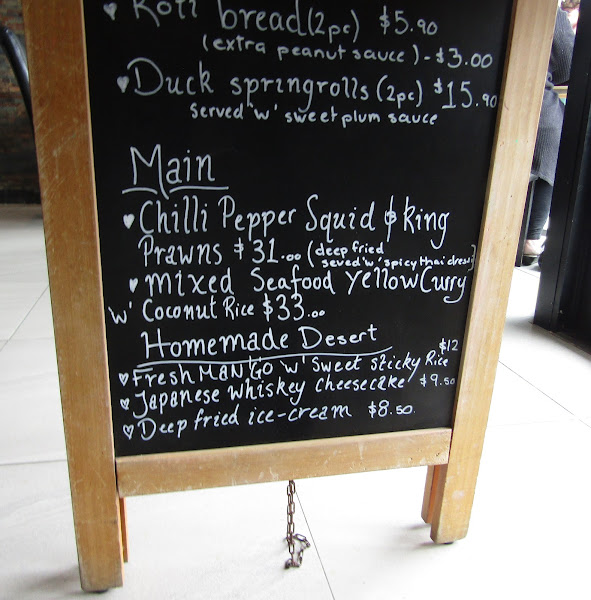 ♥ Roti bread (2pc) $5.90
(extra peanut sauce) - $3.00
♥ Duck springrolls (2pc) $15.90
Served w' sweet plum sauce
Main
♥ Chilli Pepper Squid & King
Prawns $31.00 (deep fried
served w' spicy thai dress)
♥ mixed Seafood Yellow Curry
w' Coconut Rice $33.00
Homemade Desert
♥ Fresh MANGO w' Sweet sticky Rice $12
♥ Japanese Whiskey cheesecake $9.50
♥ Deep fried ice-cream $8.50